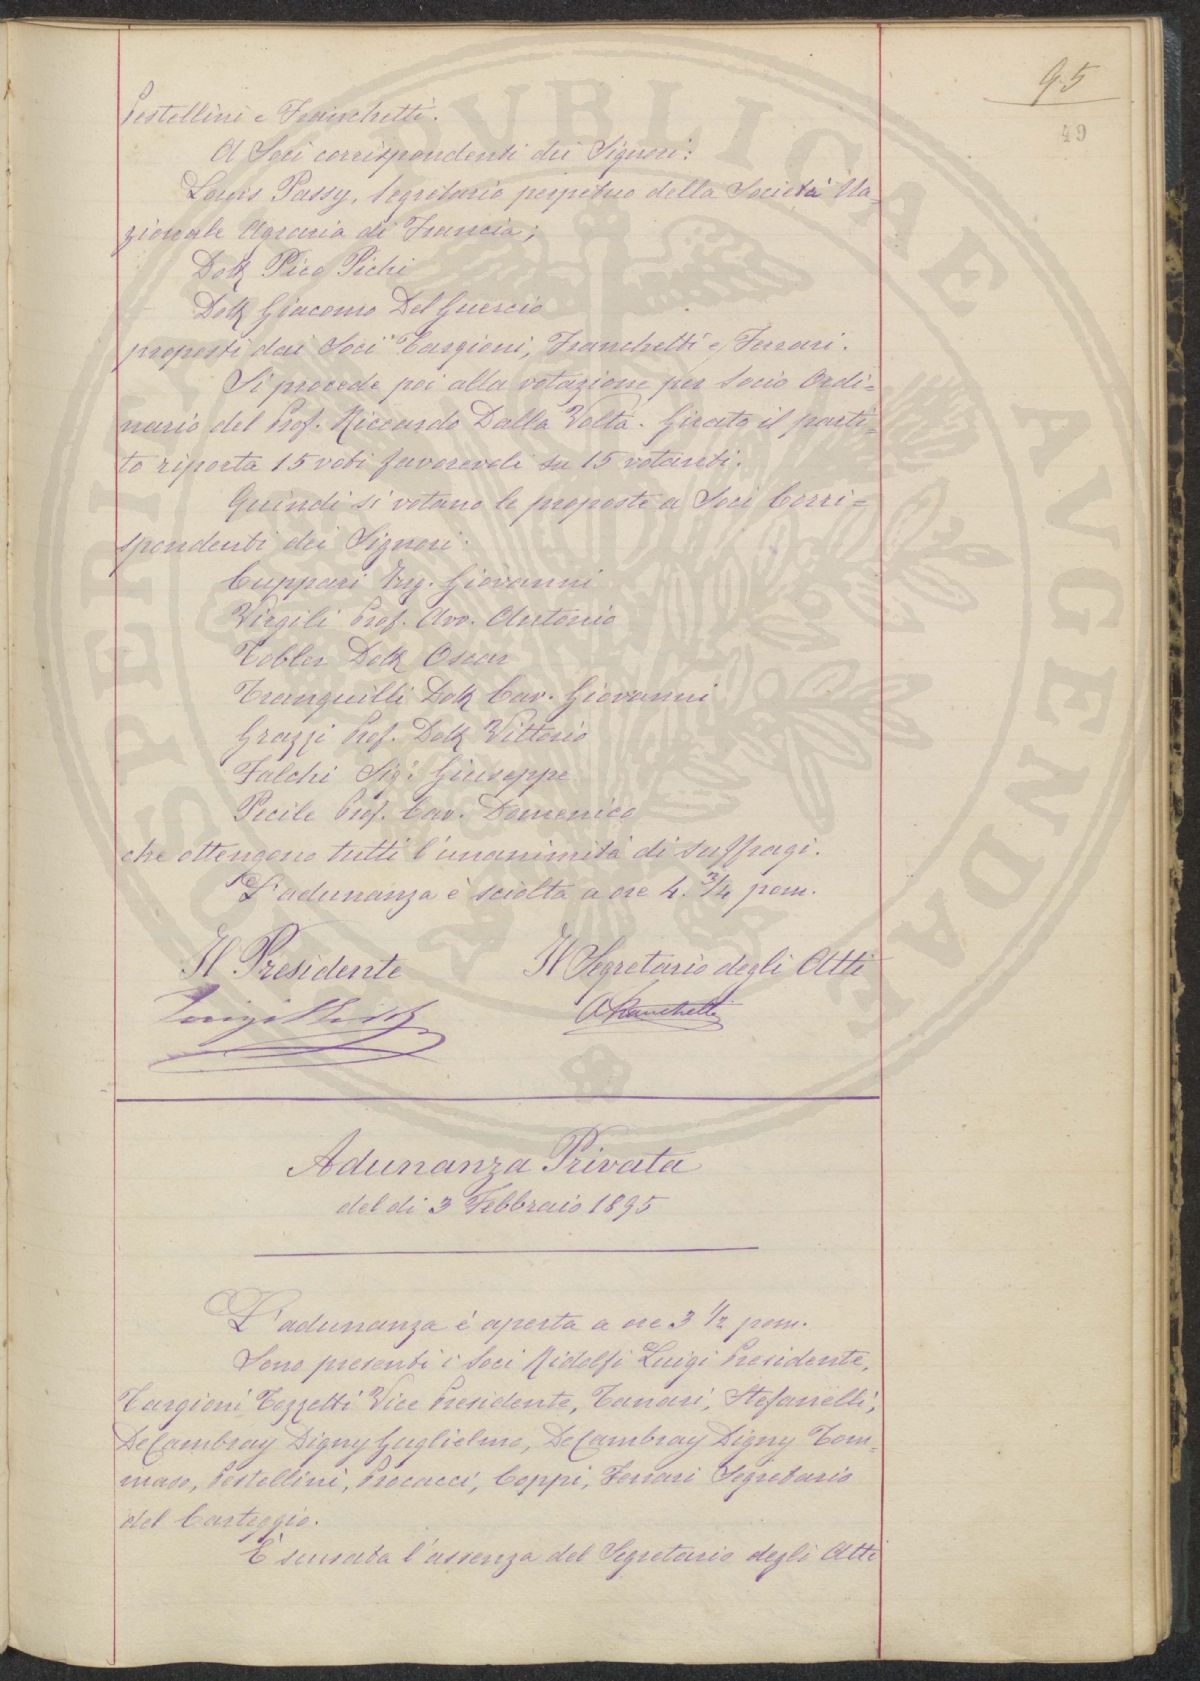 95
49
Pestellini e Franchetti.
A Soci corrispondenti dei Signori:
Louis Passy, Segretario perpetuo della Società Na=
zionale Agraria di Francia;
Dott Pico Pichi
Dott Giacomo Del Guercio
proposti dai Soci Targioni, Franchetti e Ferrari.
Si procede poi alla votazione per Socio Ordi=
nario del Prof. Riccardo Dalla Volta. Girato il parti=
to riporta 15 voti favorevoli su 15 votanti.
Quindi si votano le proposte a Soci Corri=
spondenti dei Signori:
Cuppari Ing. Giovanni
Virgili Prof. Avv. Antonio
Tobler Dott Oscar
Tranquilli Dott Cav. Giovanni
Grazzi Prof. Dott Vittorio
Falchi Sigr Giuseppe
Pecile Prof. Cav. Domenico
che ottengono tutti l'unanimità di suffragi.
L'adunanza è sciolta a ore 4. 3/4 pom.
Il Presidente
Il Segretario degli Atti
Luigi Ridolfi
A Franchetti
Adunanza Privata
del dì 3 Febbraio 1895
L'adunanza è aperta a ore 3 1/2 pom.
Sono presenti i Soci Ridolfi Luigi Presidente,
Targioni Tozzetti Vice Presidente, Tanari, Stefanelli,
De Cambray Digny Guglielmo, De Cambray Digny Tom=
maso, Pestellini, Procacci, Coppi, Ferrari Segretario
del Carteggio.
È scusata l'assenza del Segretario degli Atti
PROSPERITATI PVBLICAE AVGENDAE